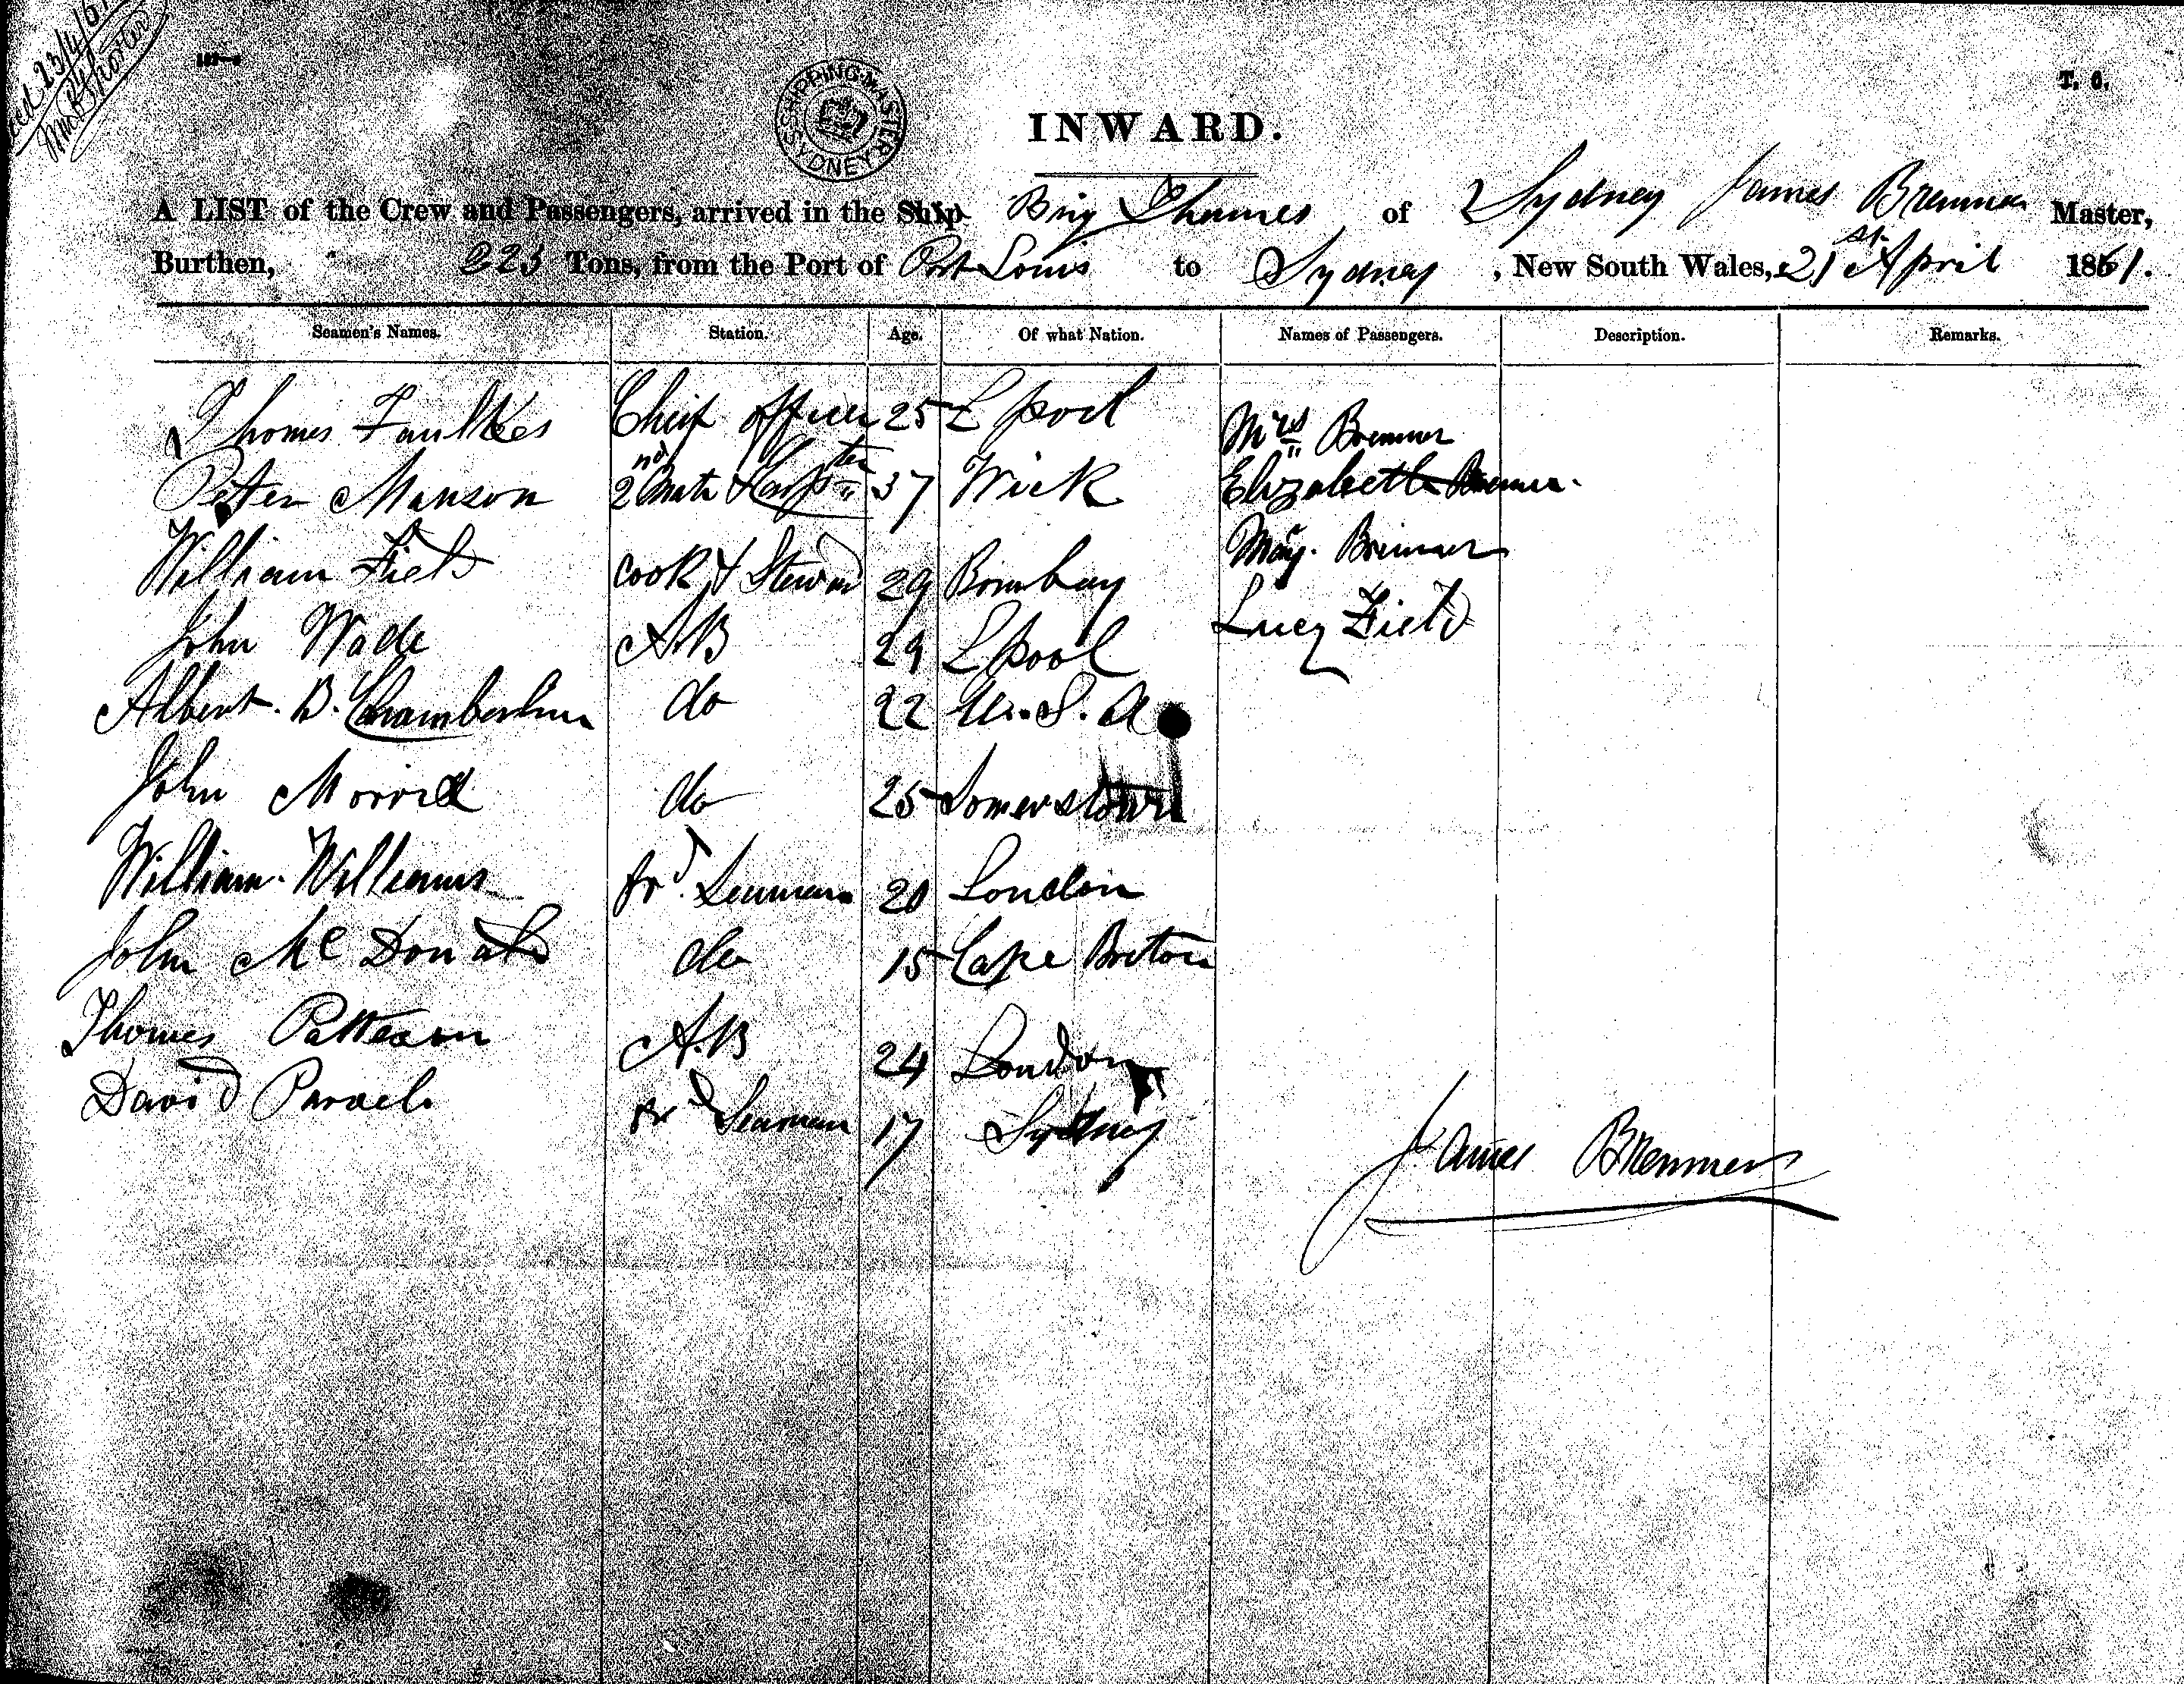 T. 6.
SHIPPING MASTER SYDNEY
INWARD.
A LIST of the Crew and Passengers, arrived in the Ship Brig Thames of Sydney James Bremner Master,
Burthen, 223 Tons, from the Port of Port Louis to Sydney, New South Wales, 21st April 1861.
Seamen's Names. Station. Age. Of what Nation. Names of Passengers. Description. Remarks.
Thomas Faulkes Chief officer 25 Lpool Mrs Bremner
Peter Manson 2nd Mate & Carpter 37 Wick Elizabeth Bremner
William Field Cook & Steward 29 Bombay May. Bremner
John Wade AB 29 Lpool Lucy Field
Albert. B. Chamberlin do 22 U.S.A
John do 25 Somerstown
William Williams Seaman 20 London
John McDonald do 15 Cape Breton
Thomas Patterson A.B 24 London
David Seaman 17 Sydney
James Bremner